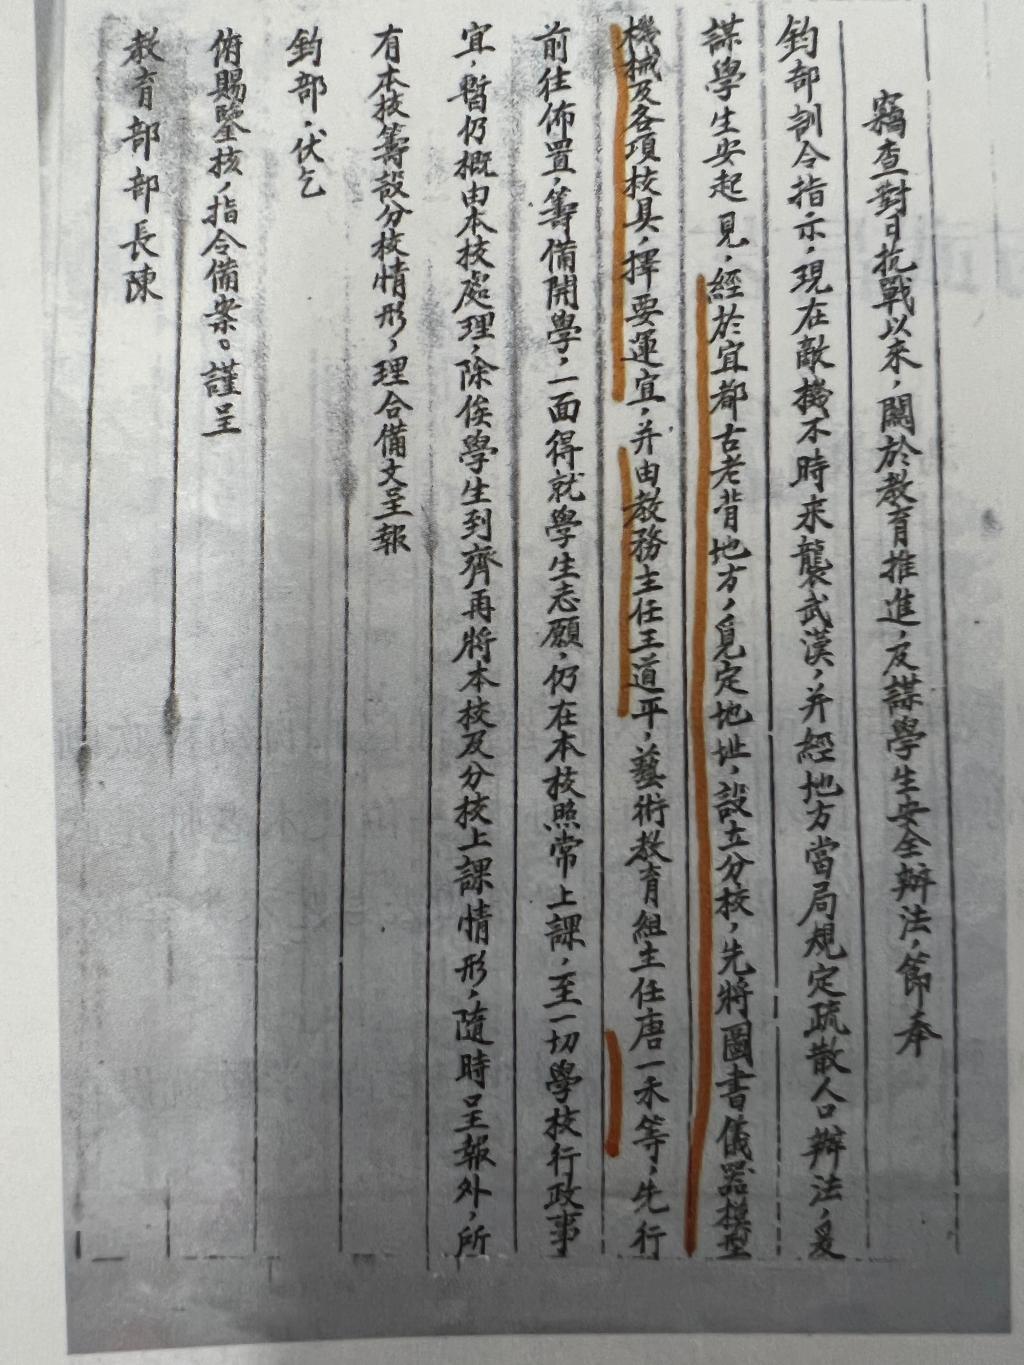 竊查對日抗戰以來，關於教育推進，及謀學生安全辦法，節奉
鈞部訓令指示，現在敵機不時來襲武漢，并經地方當局規定疏散人口辦法，爰
謀學生安起見，經於宜都古老背地方，覓定地址，設立分校，先將圖書儀器模型
機械及各項校具，擇要運宜，并由教務主任王道平，藝術教育組主任唐一禾等，先行
前往佈置，籌備開學，一面得就學生志願，仍在本校照常上課，至一切學校行政事
宜，暫仍概由本校處理，除俟學生到齊再將本校及分校上課情形，隨時呈報外，所
有本校籌設分校情形，理合備文呈報
鈞部，伏乞
俯賜鑒核，指令備案。謹呈
教育部部長陳